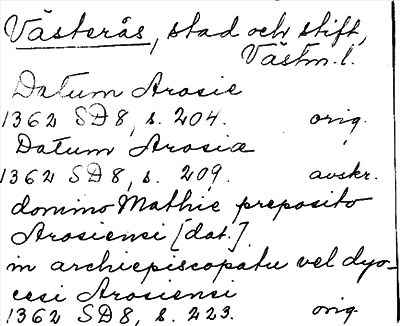 Västerås, stad och stift,
Västm. l.
Datum Arosie
1362 SD 8, s. 204. orig.
Datum Arosiæ
1362 SD 8, s. 209. avskr.
domino Mathie preposito
Arosiensi [dat.]
in archiepiscopatu vel dyo-
cesi Arosiensi
1362 SD 8, s. 223. orig.